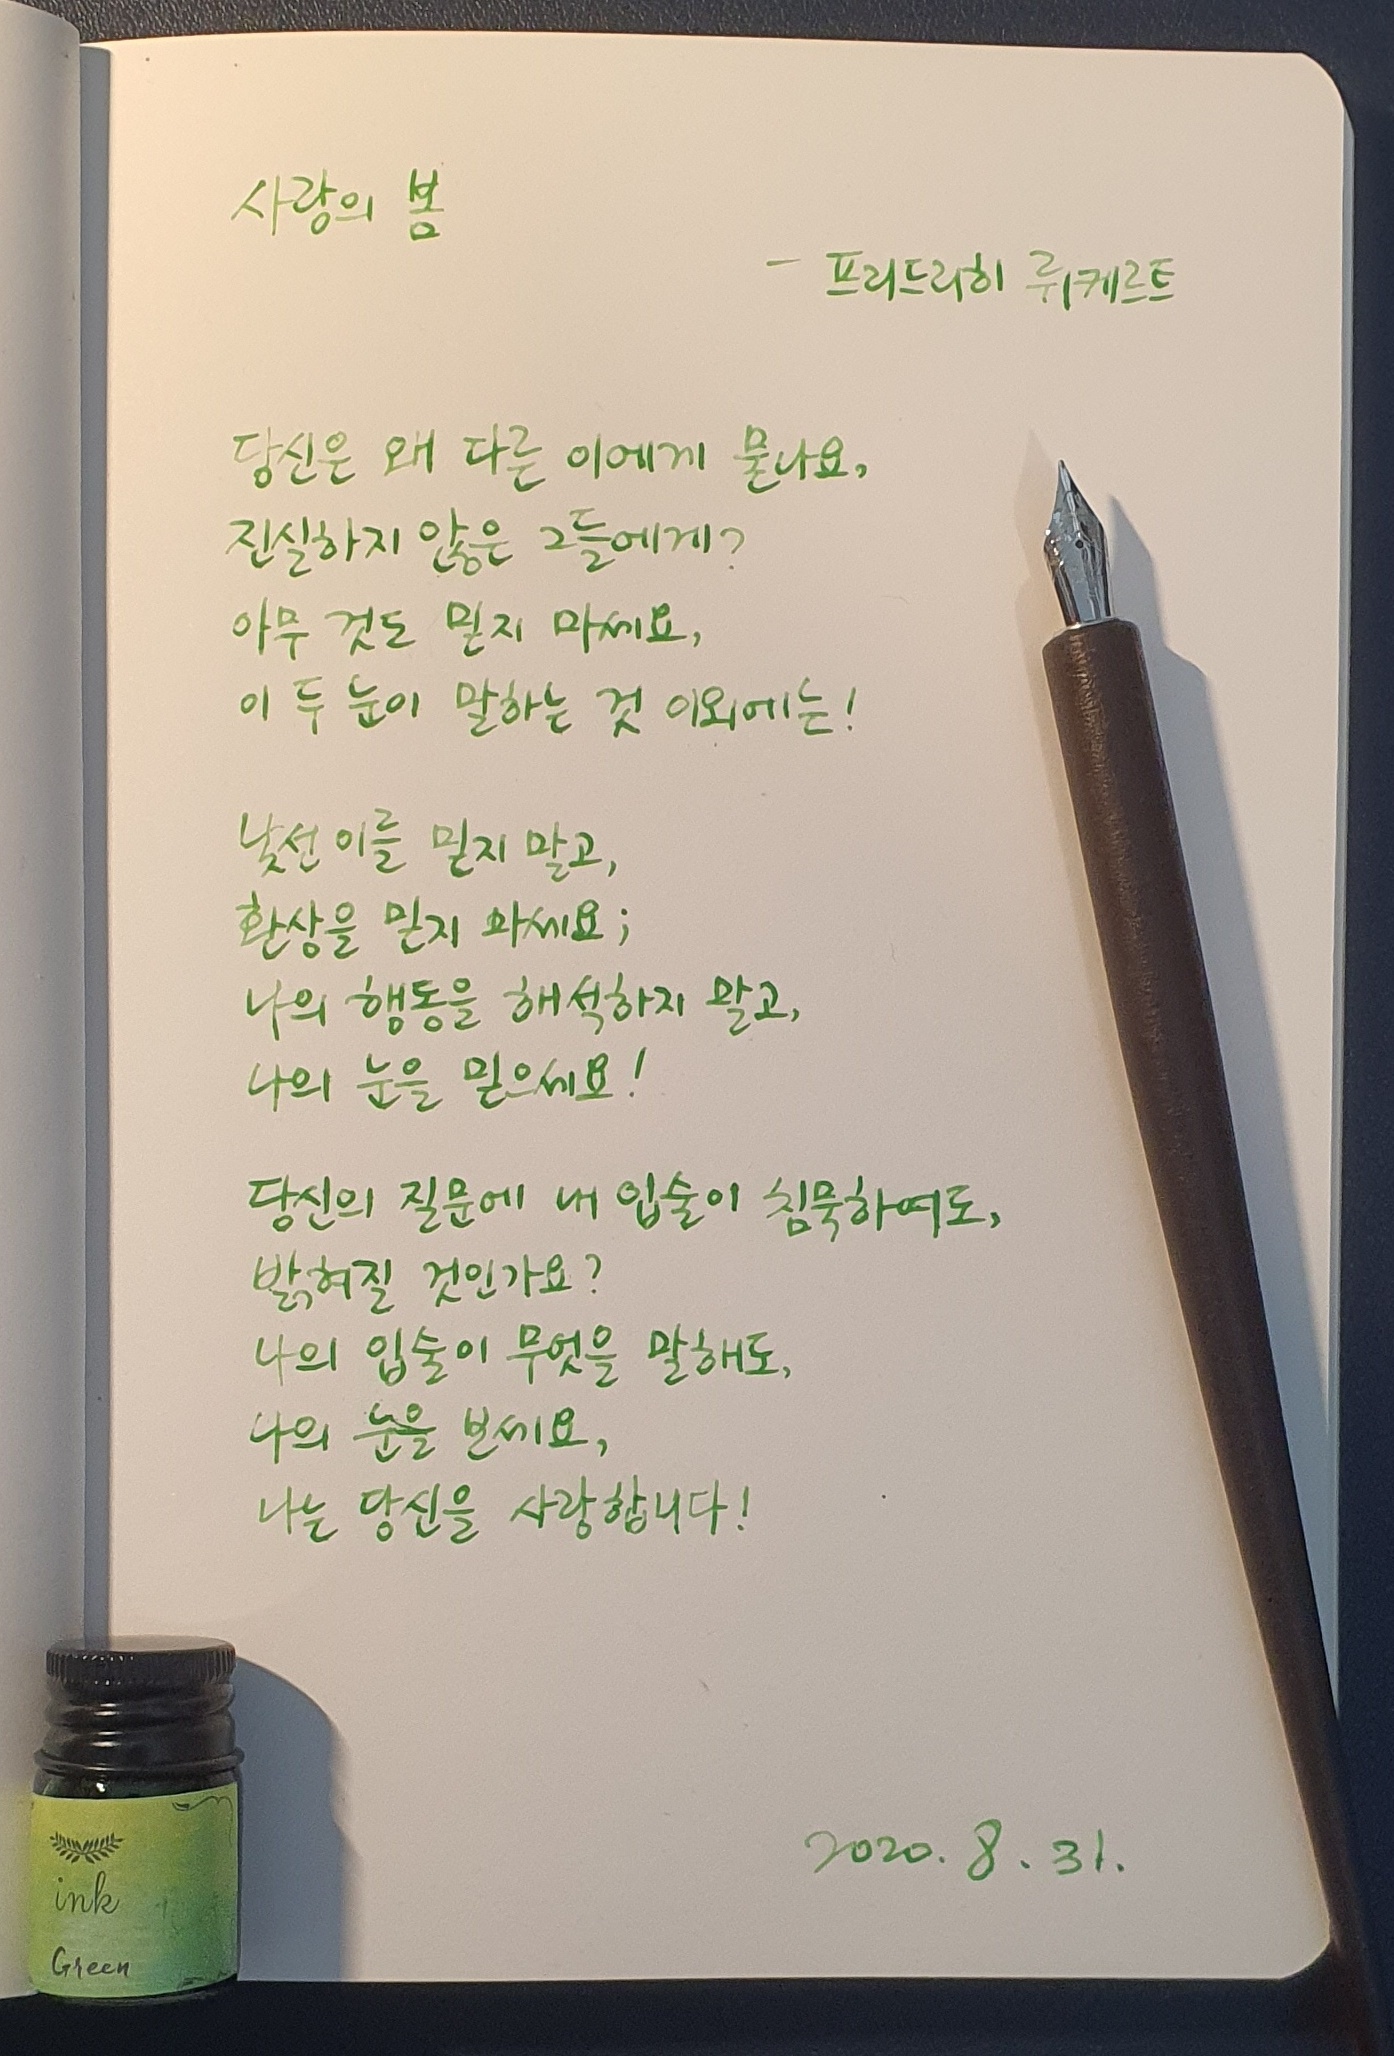 사랑의 봄
- 프리드리히 뤼케르트
당신은 왜 다른 이에게 묻나요,
진실하지 않은 그들에게?
아무 것도 믿지 마세요,
이 두 눈이 말하는 것 이외에는!
낯선 이를 믿지 말고,
환상을 믿지 마세요;
나의 행동을 해석하지 말고,
나의 눈을 믿으세요!
당신의 질문에 내 입술이 침묵하여도,
밝혀질 것인가요?
나의 입술이 무엇을 말해도,
나의 눈을 보세요,
나는 당신을 사랑합니다!
2020. 8. 31.
ink
Green